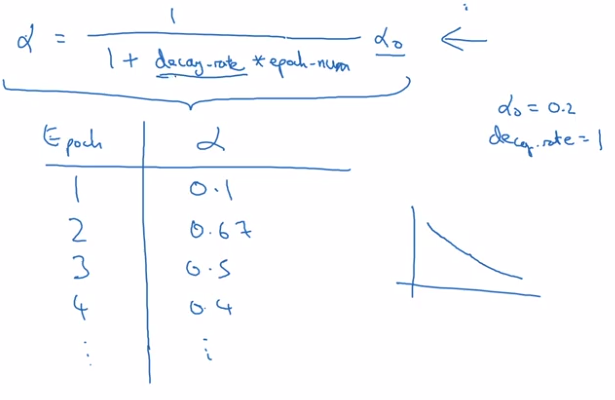 α = 1 / (1 + decay-rate * epoch-num) α₀ ←
α₀ = 0.2
decay-rate = 1
Epoch α
1 0.1
2 0.67
3 0.5
4 0.4
⋮ ⋮